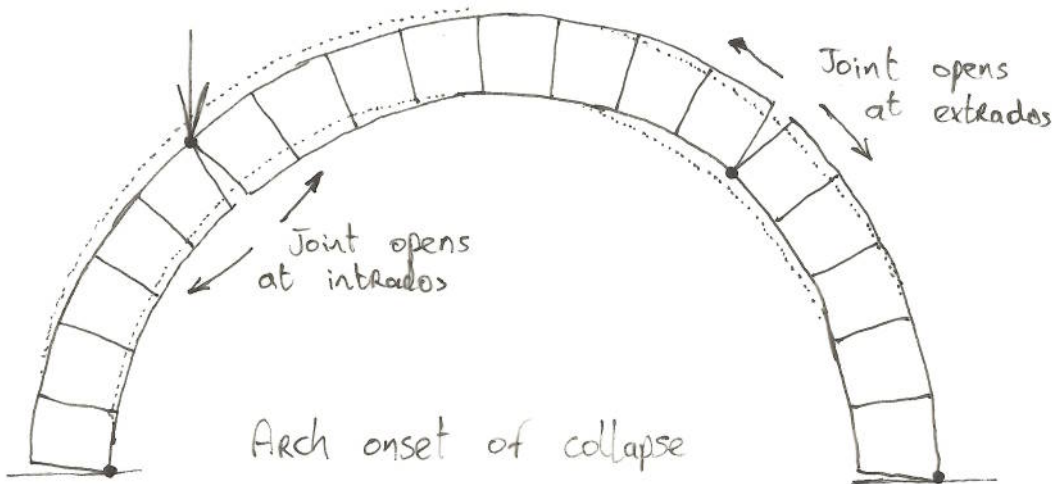 Joint opens
at extrados
Joint opens
at intrados
Arch onset of collapse